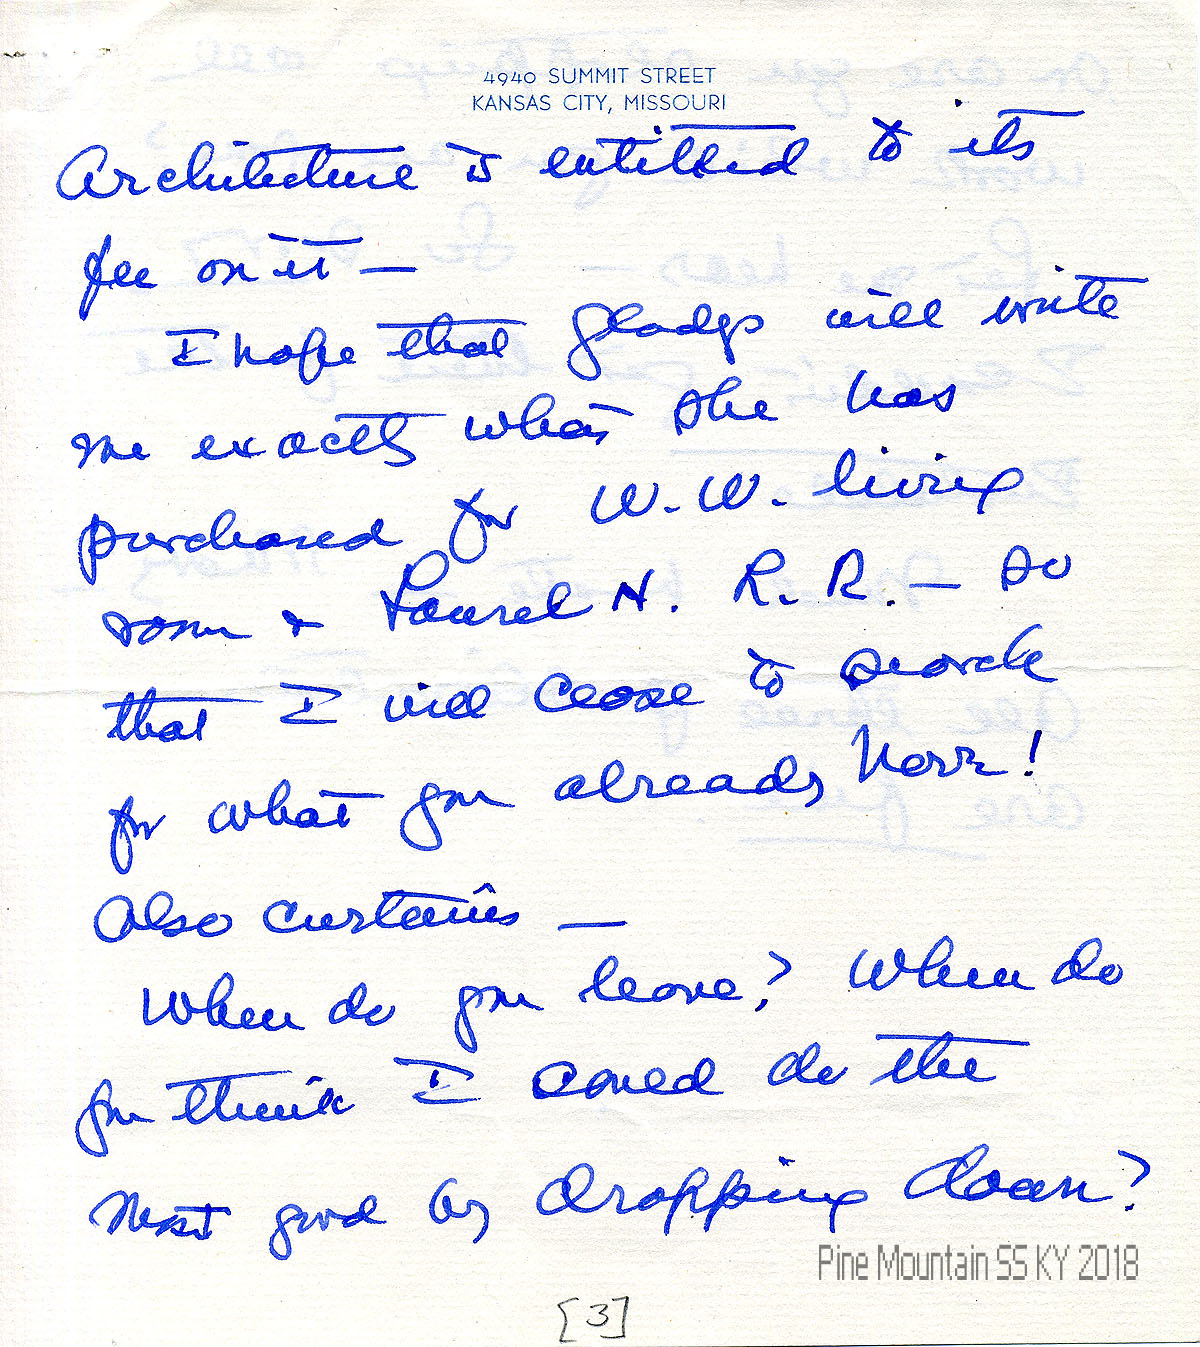 4940 SUMMIT STREET
KANSAS CITY, MISSOURI
Architecture is entitled to its
fee on it —
I hope that Gladys will write
me exactly what she has
purchased for W. W. living
room & Laurel H. R. R. — so
that I will cease to search
for what you already have!
Also curtains —
When do you leave? When do
you think I could do the
most good by dropping down?
Pine Mountain SS KY 2018
[3]